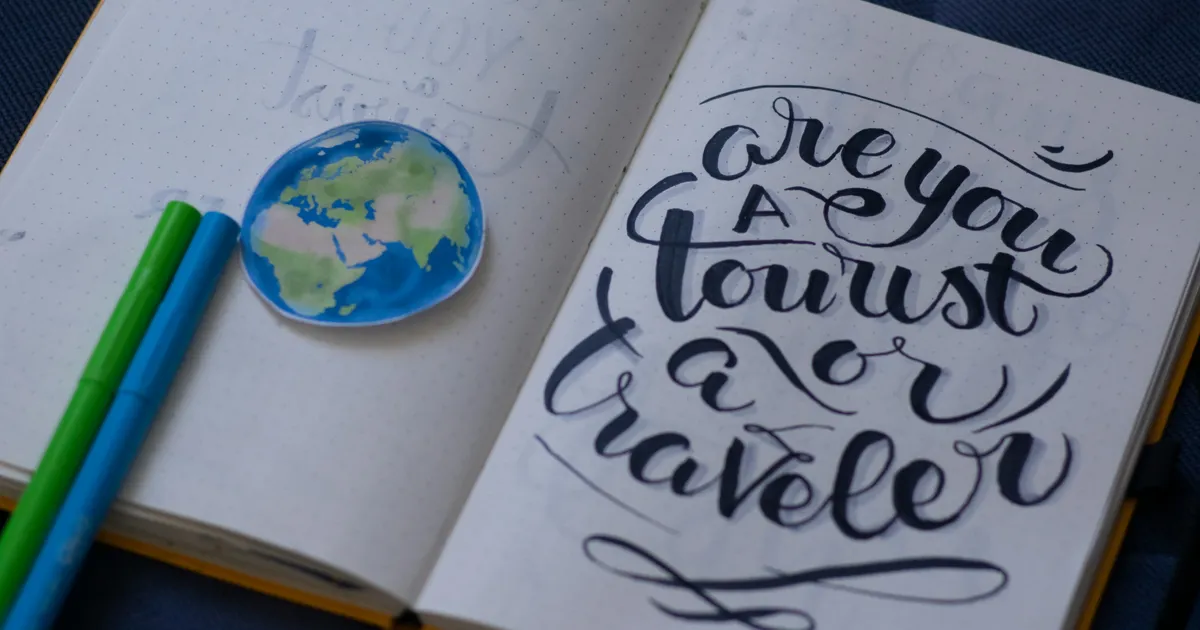 are you
A
tourist
or
a
traveler